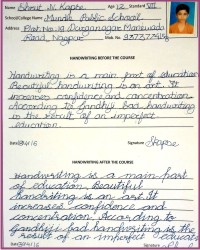 Name Bharat N. Kapse Age 12 Standard VII
School/College Name Mundle Public School
Add. Plot No. 19 Durganagar Manewada
Road, Nagpur Mob. No.
HANDWRITING BEFORE THE COURSE
Handwriting is a main part of education
Beautiful handwriting is an art. It
increases confidence and concentration
According to Gandhiji bad handwriting
is the result of an imperfect
education.
Date 8/4/16 Signature
HANDWRITING AFTER THE COURSE
Handwriting is a main part
of education. Beautiful
handwriting is an art. It
increases confidence and
concentration. According to
Gandhiji bad handwriting is the
result of an imperfect education
Signature